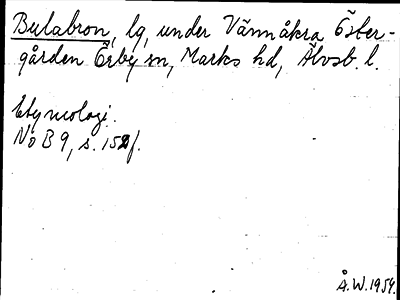 Bulabron, lg, under Vännåkra Öster-
gården Örby sn, Marks hd, Älvsb. l.
Etymologi.
No B 9, s. 152 f.
Å.W. 1954.